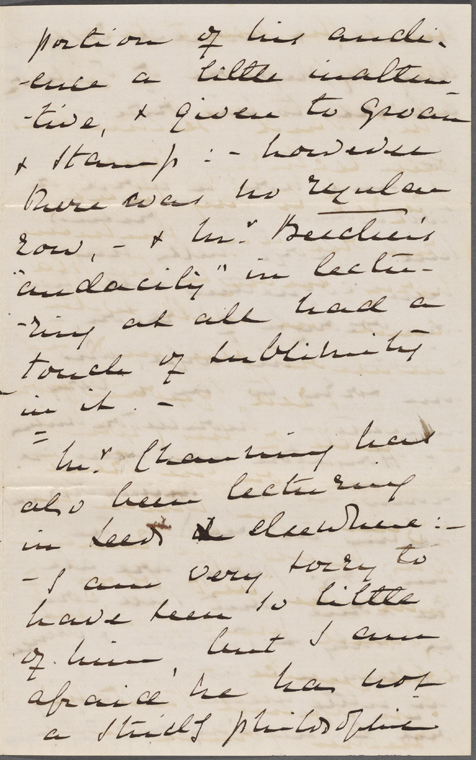 portion of his audi-
-ence a little inatten
-tive, & given to groan
& stamp : - however
there was no regular
row, - & Mr. Beecher's
"audacity" in lectu-
-ring at all had a
touch of sublimity
in it . -
= Mr. Channing has
also been lecturing
in Leeds & elsewhere : -
- I am very sorry to
have seen so little
of him, but I am
afraid he has not
a strictly philosophic